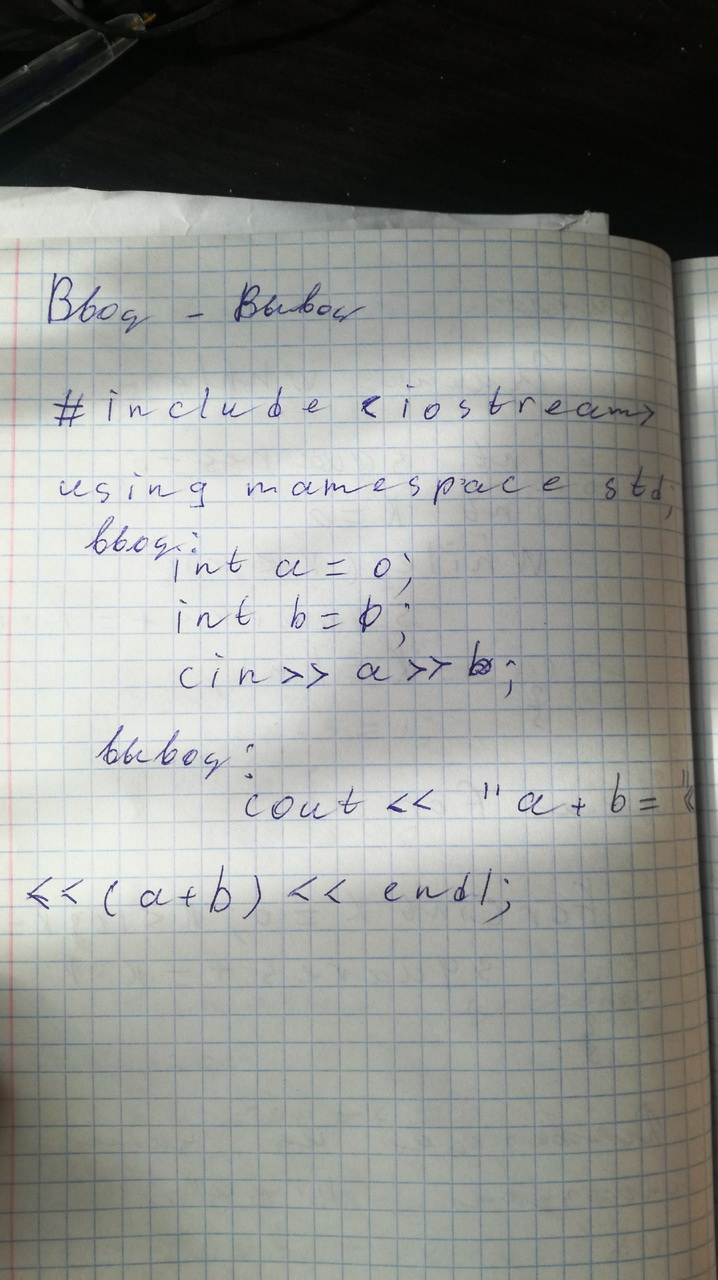 Ввод - Вывод
#include <iostream>
using mamespace std;
ввод:
int a = 0;
int b = 0;
cin >> a >> b;
вывод:
cout << "a + b = "
<< (a+b) << endl;